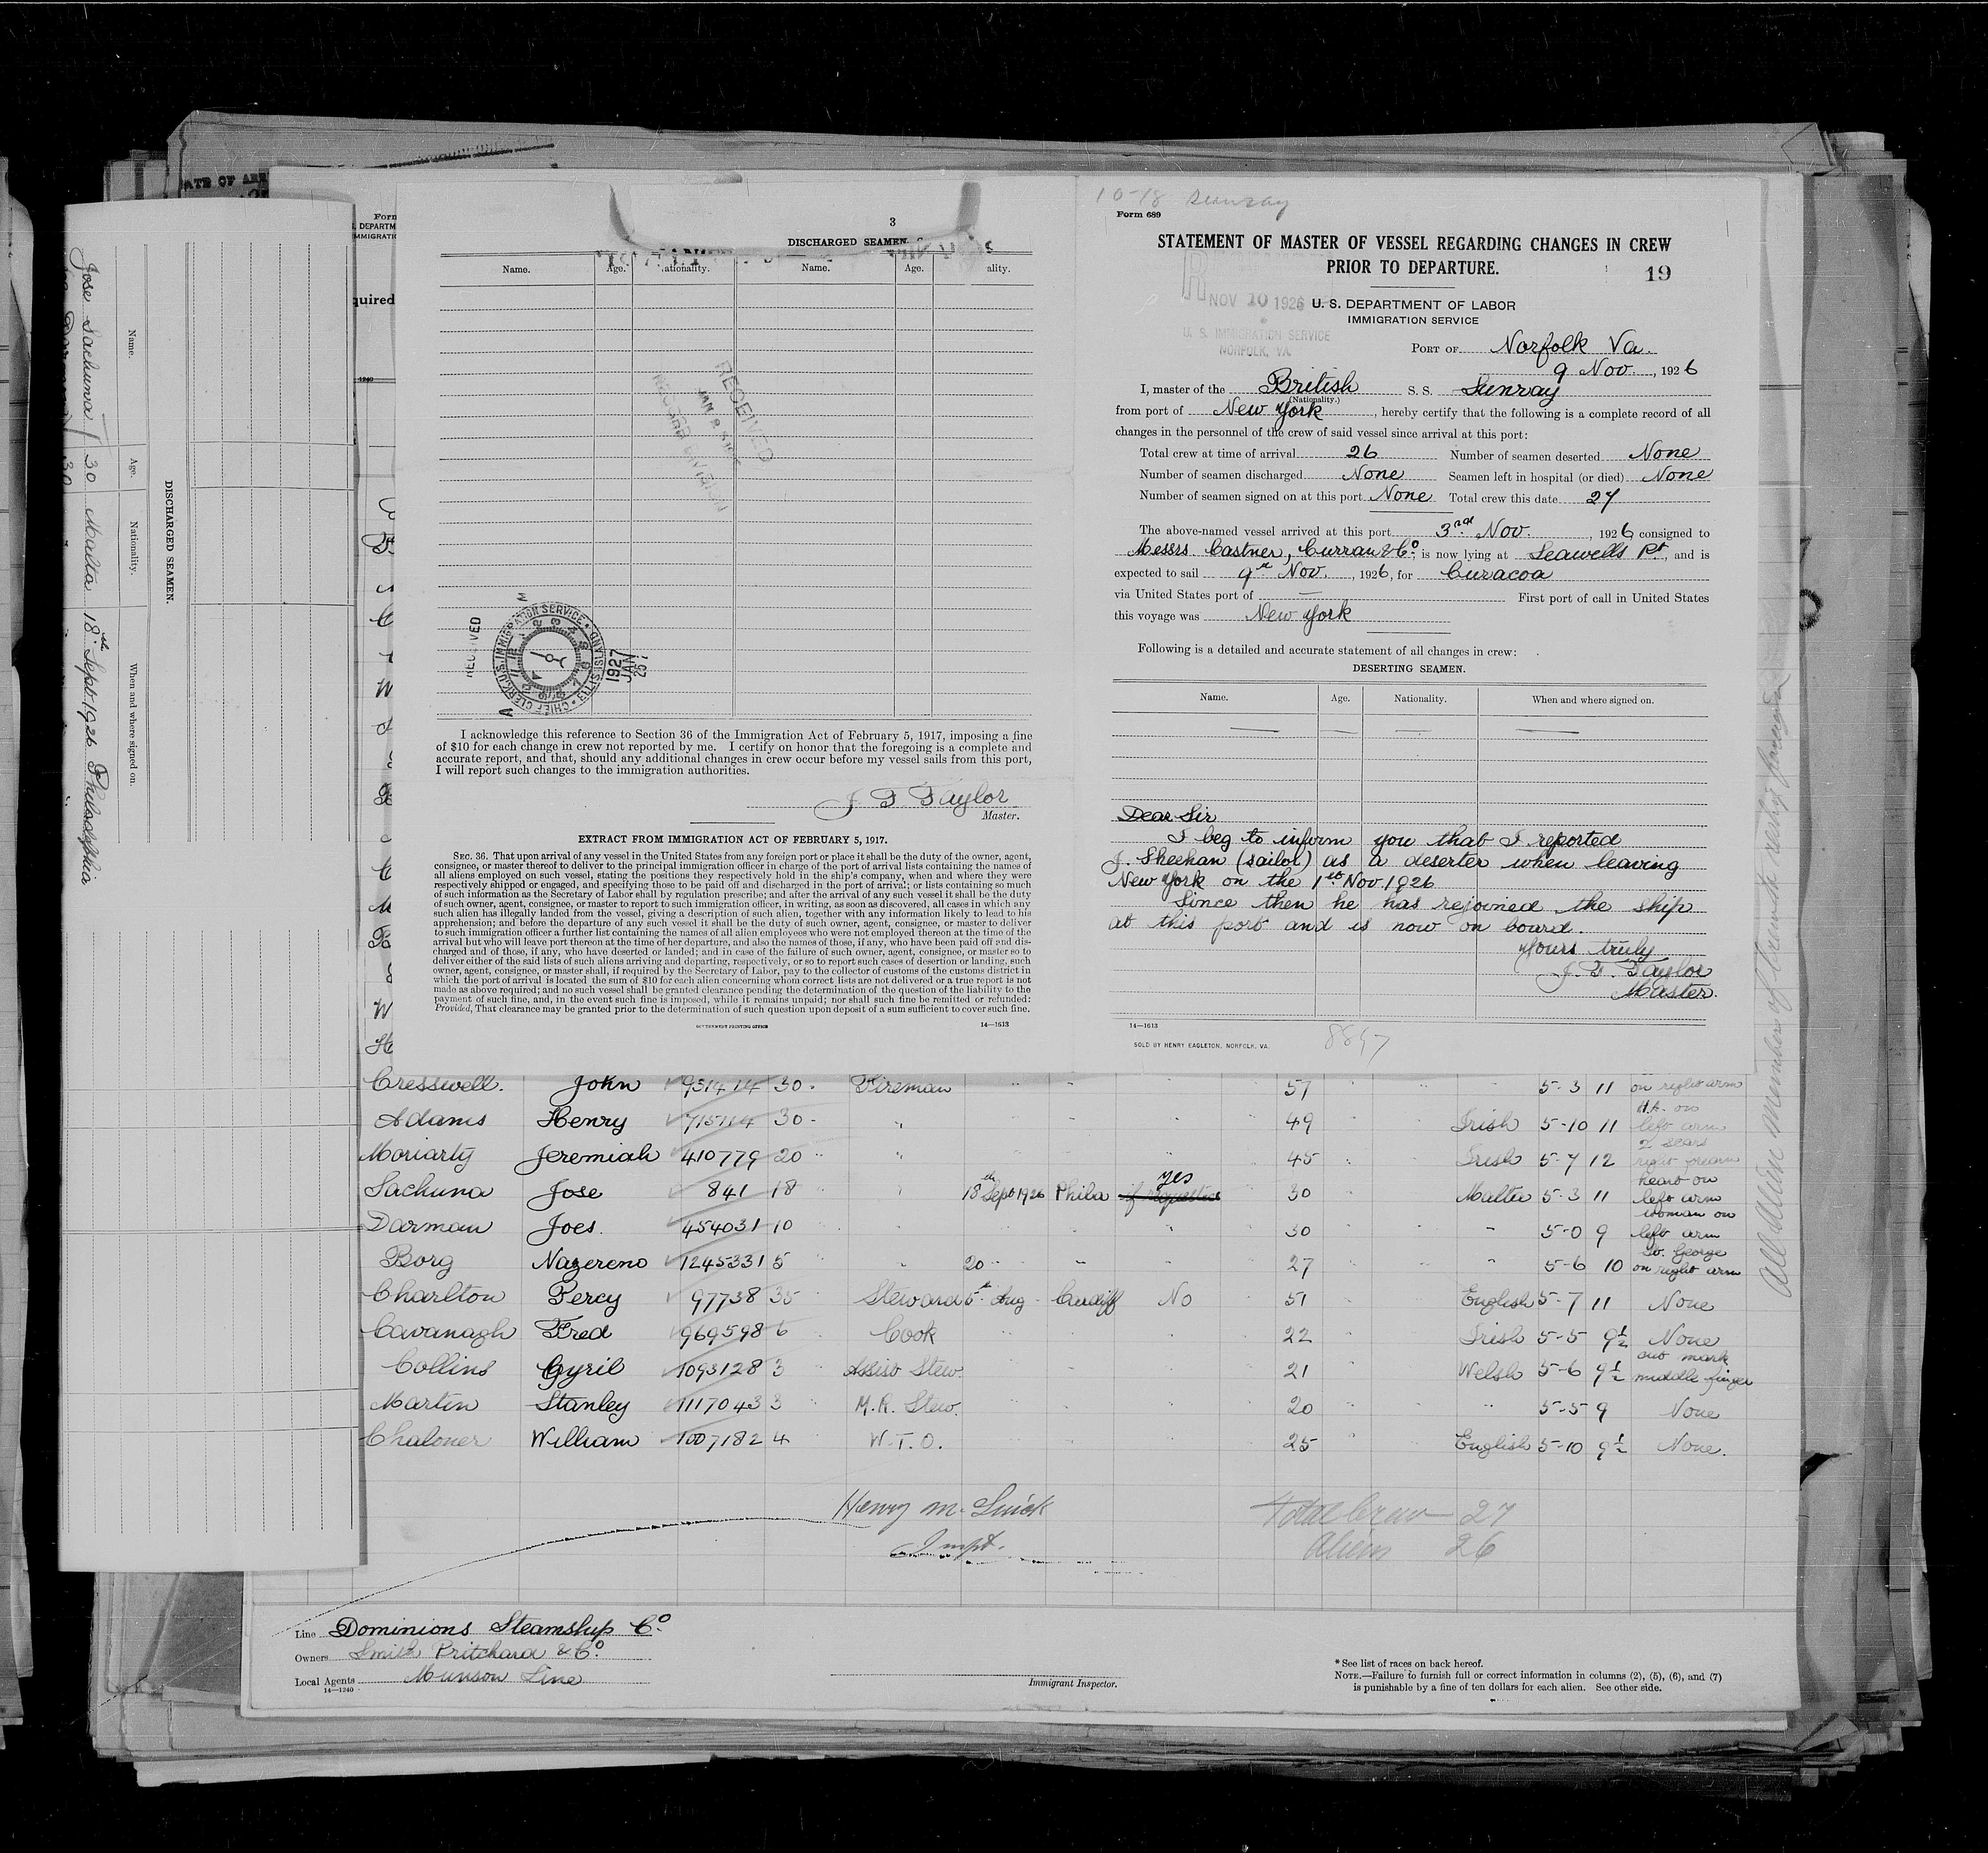 10-18 Sunray
Form 689
STATEMENT OF MASTER OF VESSEL REGARDING CHANGES IN CREW
PRIOR TO DEPARTURE.
19
NOV 10 1926
U. S. IMMIGRATION SERVICE
NORFOLK, VA.
U. S. DEPARTMENT OF LABOR
IMMIGRATION SERVICE
PORT OF Norfolk Va.
9 Nov., 1926
I, master of the British S. S. Sunray
(Nationality.)
from port of New York, hereby certify that the following is a complete record of all
changes in the personnel of the crew of said vessel since arrival at this port:
Total crew at time of arrival 26 Number of seamen deserted None
Number of seamen discharged None Seamen left in hospital (or died) None
Number of seamen signed on at this port None Total crew this date 27
The above-named vessel arrived at this port 3rd Nov., 1926, consigned to
Messrs. Castner, Curran & Co, is now lying at Seawells Pt, and is
expected to sail 9th Nov., 1926, for Curacoa
via United States port of — First port of call in United States
this voyage was New York
Following is a detailed and accurate statement of all changes in crew:
DESERTING SEAMEN.
Name. Age. Nationality. When and where signed on.
Dear Sir
I beg to inform you that I reported
J. Sheehan (sailor) as a deserter when leaving
New York on the 1st Nov 1926
Since then he has rejoined the ship
at this port and is now on board.
Yours truly
J. F. Taylor
Master.
14—1613
SOLD BY HENRY EAGLETON, NORFOLK, VA.
8897
3
DISCHARGED SEAMEN
Name. Age. Nationality. Name. Age. ality.
RECEIVED
RECEIVED
CHIEF CLERK, U.S. IMMIGRATION SERVICE
1927
JAN
25
I acknowledge this reference to Section 36 of the Immigration Act of February 5, 1917, imposing a fine
of $10 for each change in crew not reported by me. I certify on honor that the foregoing is a complete and
accurate report, and that, should any additional changes in crew occur before my vessel sails from this port,
I will report such changes to the immigration authorities.
J F Taylor
Master.
EXTRACT FROM IMMIGRATION ACT OF FEBRUARY 5, 1917.
SEC. 36. That upon arrival of any vessel in the United States from any foreign port or place it shall be the duty of the owner, agent,
consignee, or master thereof to deliver to the principal immigration officer in charge of the port of arrival lists containing the names of
all aliens employed on such vessel, stating the positions they respectively hold in the ship's company, when and where they were
respectively shipped or engaged, and specifying those to be paid off and discharged in the port of arrival; or lists containing so much
of such information as the Secretary of Labor shall by regulation prescribe; and after the arrival of any such vessel it shall be the duty
of such owner, agent, consignee, or master to report to such immigration officer, in writing, as soon as discovered, all cases in which any
such alien has illegally landed from the vessel, giving a description of such alien, together with any information likely to lead to his
apprehension; and before the departure of any such vessel it shall be the duty of such owner, agent, consignee, or master to deliver
to such immigration officer a further list containing the names of all alien employees who were not employed thereon at the time of the
arrival but who will leave port thereon at the time of her departure, and also the names of those, if any, who have been paid off and dis-
charged and of those, if any, who have deserted or landed; and in case of the failure of such owner, agent, consignee, or master so to
deliver either of the said lists of such aliens arriving and departing, respectively, or so to report such cases of desertion or landing, such
owner, agent, consignee, or master shall, if required by the Secretary of Labor, pay to the collector of customs of the customs district in
which the port of arrival is located the sum of $10 for each alien concerning whom correct lists are not delivered or a true report is not
made as above required; and no such vessel shall be granted clearance pending the determination of the question of the liability to the
payment of such fine, and, in the event such fine is imposed, while it remains unpaid; nor shall such fine be remitted or refunded:
Provided, That clearance may be granted prior to the determination of such question upon deposit of a sum sufficient to cover such fine.
GOVERNMENT PRINTING OFFICE
14—1613
DISCHARGED SEAMEN.
Name. Age. Nationality. When and where signed on.
Jose Sachuna 30 Malta 18th Sept. 1926 Philadelphia
ATE OF ARR
quired
Cresswell. John 951414 30 Fireman 57 5-3 11 on right arm
Adams Henry 715114 30 " 49 Irish 5-10 11 H.A. on left arm
Moriarty Jeremiah 410779 20 " 45 Irish 5-7 12 2 scars right forearm
Sachuna Jose 841 18 " 18th Sept 1926 Phila if requested yes 30 Malta 5-3 11 heart on left arm
Darman Joes. 454031 10 " 30 " 5-0 9 woman on left arm
Borg Nazereno 1245331 5 " 20 " 27 " 5-6 10 St. George on right arm
Charlton Percy 97738 35 Steward 5th Aug Cardiff No 51 English 5-7 11 None
Cavanagh Fred 969598 6 Cook 22 Irish 5-5 9½ None
Collins Cyril 1093128 3 Assist Stew. 21 Welsh 5-6 9½ cut mark middle finger
Martin Stanley 1117043 3 M.R. Stew. 20 " 5-5 9 None
Chaloner William 1007182 4 W.T.O. 25 English 5-10 9½ None.
Henry M.
Inspt.
Total Crew 27
Aliens 26
Line Dominions Steamship Co.
Owners Smith Pritchard & Co.
Local Agents Munson Line
14—1240
Immigrant Inspector.
* See list of races on back hereof.
NOTE.—Failure to furnish full or correct information in columns (2), (5), (6), and (7)
is punishable by a fine of ten dollars for each alien. See other side.